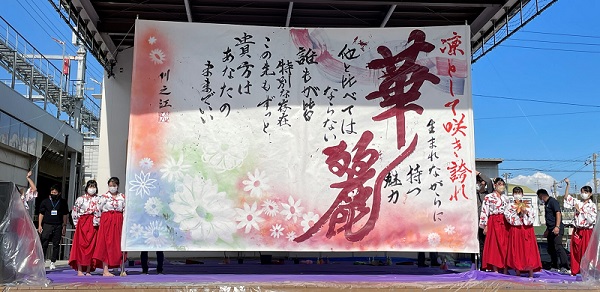 凛として咲き誇れ
生まれながらに
持つ
魅力
華麗
他と比べては
ならない
誰もが皆
特別な存在
この先もずっと
貴方は
あなたの
ままでいい
川之江